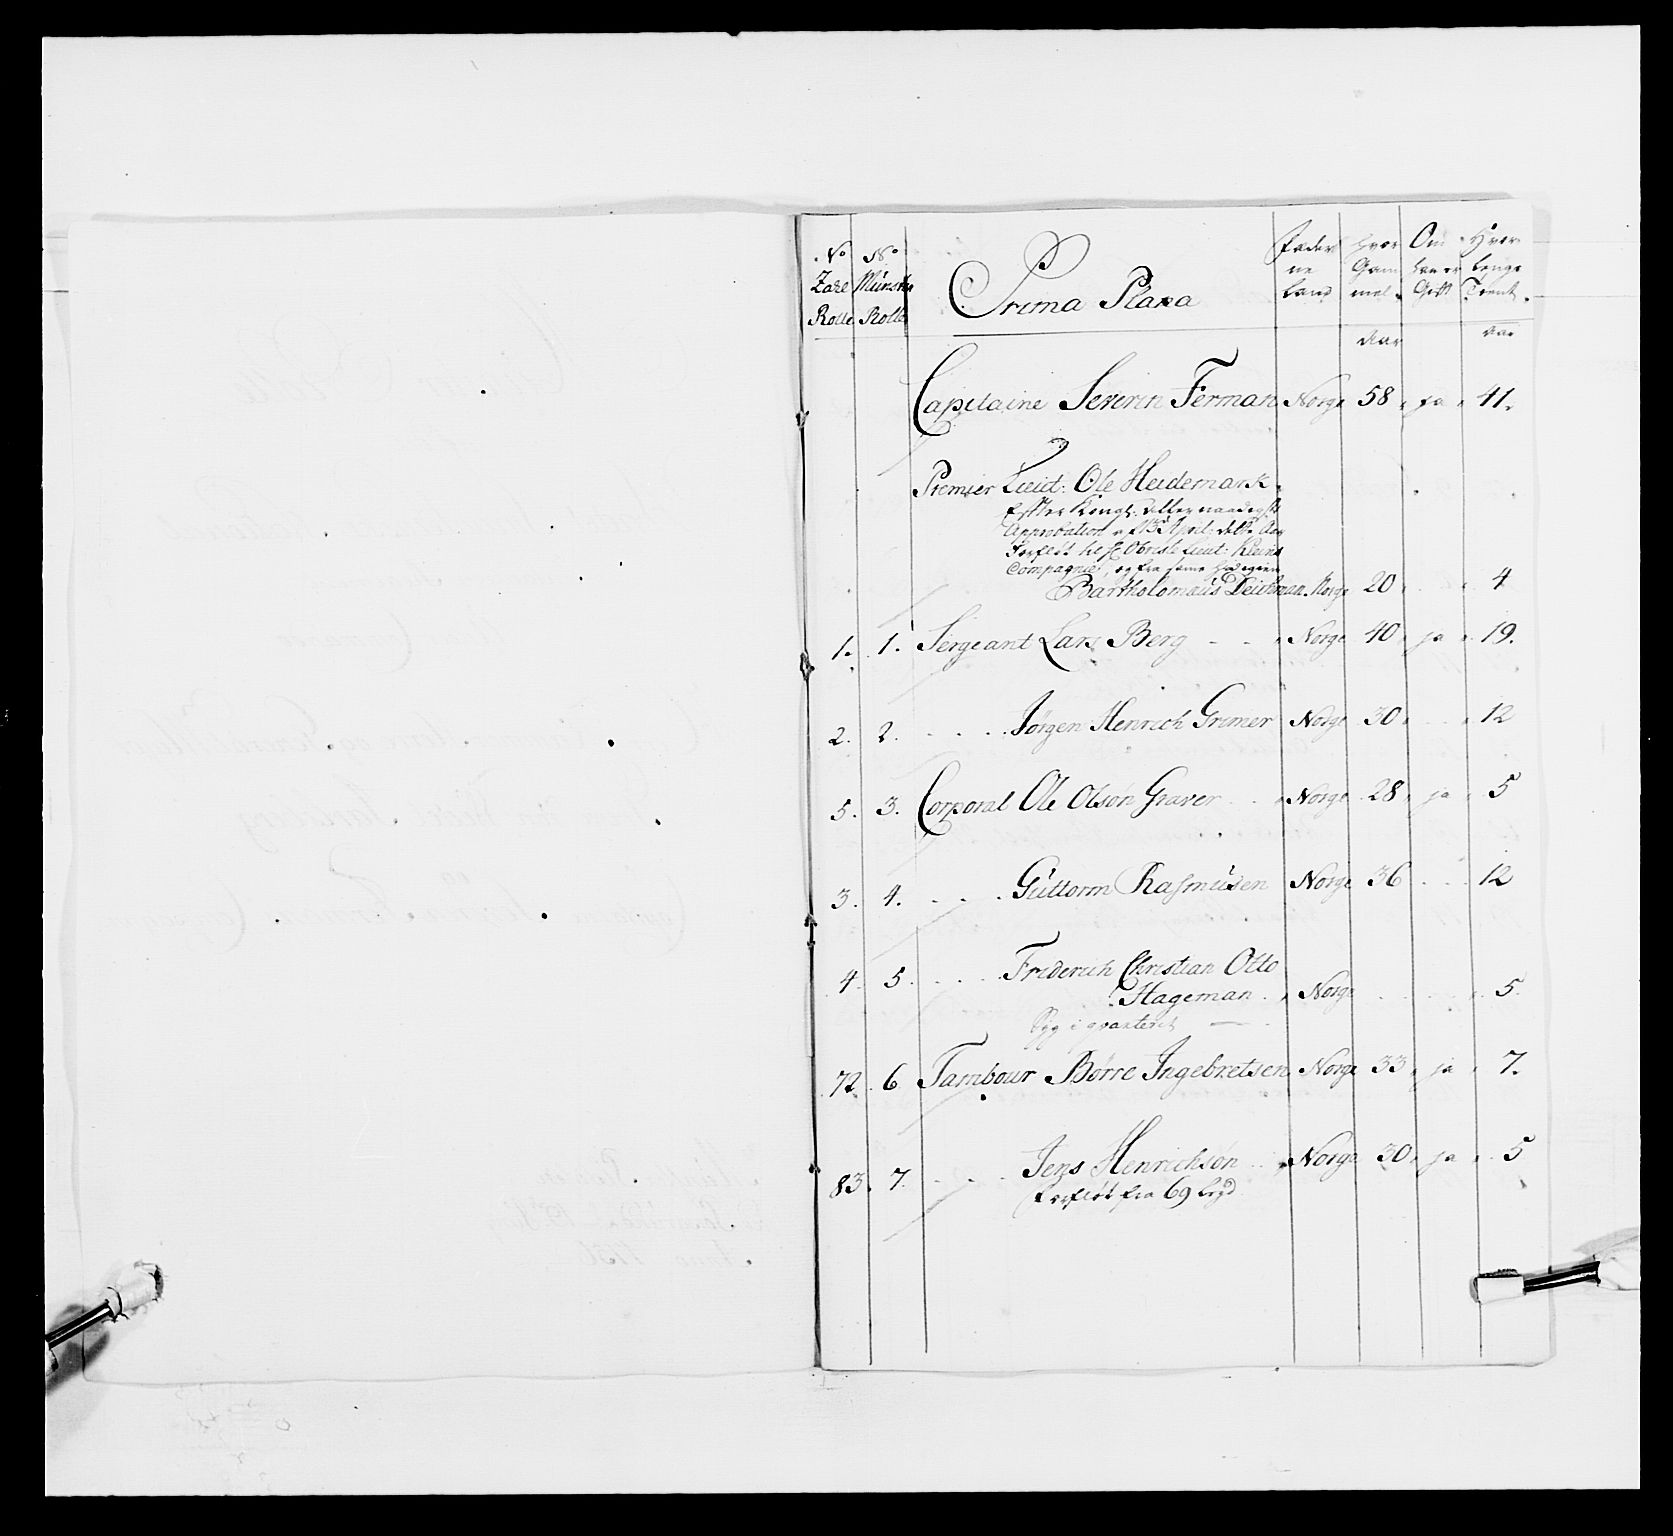 No No Fader Hvor Om Hvor
Zare Münster Prima Plana ne Gam han er lenge
Rolle Rolle land mel. Gift Tient.
Aar Aar
Capitaine Severin Ferman Norge 58 ja 41.
Premier Lieut: Ole Heidemark.
Efter Kongl: allernaadigste
Approbation af 13 April dette Aar
Forfløt til H: Obriste Lieut: Kleins
Compagnie, og fra samme igien
Bartholomæus Deichman. Norge 20 4
1. 1. Sergeant Lars Berg - - Norge 40 ja 19.
2. 2. . . . Jørgen Henrich Gremer Norge 30 12
5. 3. Corporal Ole Olsøn Graver Norge 28 ja 5
3. 4. . . . Guttorm Rasmusen Norge 36 12
4 5. . . . Friderich Christian Otto
Hageman Norge 5.
Syg i qvarteret
72. 6 Tambour Børre Ingebretsen Norge 33 ja 7.
83. 7. . . . Jens Henrichsøn Norge 30 ja 5
forfløt fra 69 legd